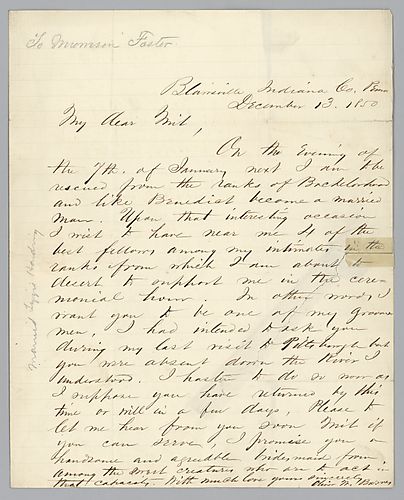 To Morrison Foster
Blairsville Indiana Co. Penna
December 13. 1850
My Dear Mit,
On the Evening of
the 7th. of January next I am to be
rescued from the ranks of Bachelordom
and like Benedict become a married
man. Upon that interesting occasion
I wish to have near me 4 of the
best fellows among my intimates in the
ranks from which I am about to
desert, to support me in the cere-
monial hour. In other words I
want you to be one of my grooms
men, I had intended to ask you
during my last visit to Pittsburgh but
you were absent down the River I
understood. I hasten to do so now as
I suppose you have returned by this
time or will in a few days, Please to
let me hear from you soon Mit if
you can serve, I promise you a
handsome and agreeable bridesmaid from
among the sweet creatures who are to act in
that capacity. With much love yours sincerely
married Lizzie Harding